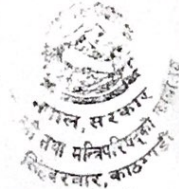 नेपाल सरकार
तथा मन्त्रिपरिषद्को कार्यालय
सिंहदरबार, काठमाडौं